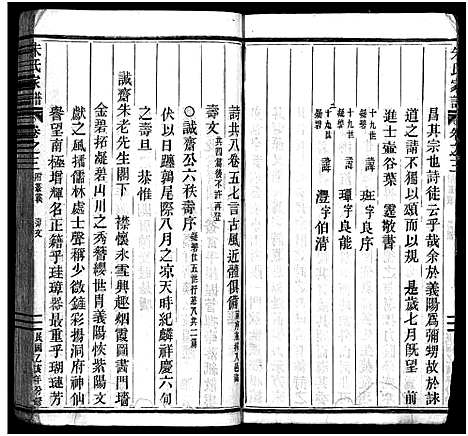 昌其宗也詩徒云乎哉余於義陽爲彌甥故於詠
道之請不獨以頌而以規 是歲七月既望 前
進士壺谷葉 霆敬書
十九世 班字良序
十九世 璋字良能
十九世 灃字伯清
詩共八卷五七言古風近體俱備
壽文 共四篇後不許再登
○誠齋公六秩壽序
伏以日躔鶉尾際八月之凉天時紀麟祥慶六旬
之壽旦 恭惟
誠齋朱老先生閣下 襟懷氷雪興趣烟霞圖書門墻
金碧拓凝碧山川之秀簪纓世肖義陽恢紫陽文
獻之風播儒林而稱少微鏟彩揚洞府神仙
譽望南極增輝名正籍乎珪璋器最重乎瑚璉芳
朱氏家譜 卷之三
壽文
民國乙亥年
朱氏家譜 卷之三